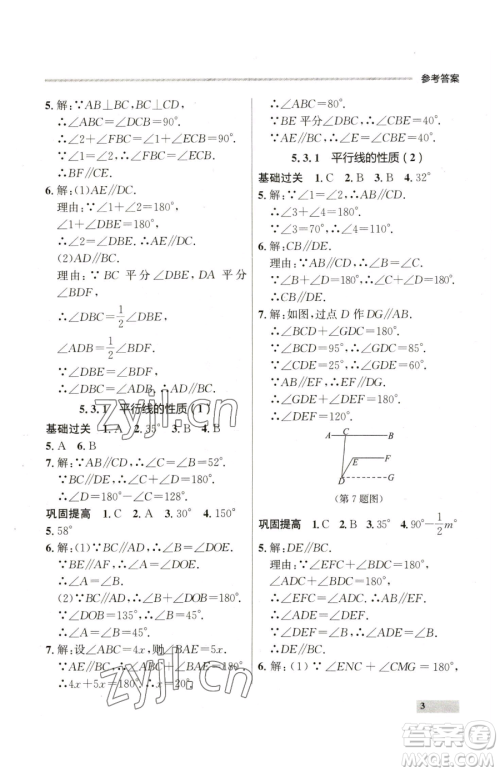 参考答案
5. 解:∵AB⊥BC,BC⊥CD,
∴∠ABC=∠DCB=90°.
∴∠2+∠FCB=∠1+∠EBC=90°.
∵∠1=∠2,∴∠EBC=∠FCB.
∴BF∥CE.
6. 解:(1)AE∥DC.
理由:∵∠1+∠2=180°,
∠1+∠DBE=180°,
∴∠2=∠DBE.∴AE∥DC.
(2)AD∥BC.
理由:∵BC 平分∠DBE,DA 平分
∠BDF,
∴∠DBC=1/2∠DBE,
∠ADB=1/2∠BDF.
∵∠BDF+∠2=180°,∠1+∠2=180°,
∴∠BDF=∠1=∠DBE.
∴∠ADB=∠DBC.∴AD∥BC.
5.3.1 平行线的性质(1)
基础过关 1. A 2. B 3. 35° 4. B
5. A 6. B
7. 解:∵AB∥CD,∴∠C=∠B=52°.
∵BC∥DE,∴∠C+∠D=180°.
∴∠D=180°-∠C=128°.
巩固提高 1. C 2. A 3. 30° 4. 150°
5. 58°
6. 解:(1)∵BC∥AD,∴∠B=∠DOE.
∵BE∥AF,∴∠A=∠DOE.
∴∠A=∠B.
(2)∵BC∥AD,∴∠DOB+∠B=180°.
∵∠DOB=135°,∴∠B=45°.
∴∠A=∠B=45°.
7. 解:设∠BAC=4x,则∠BAE=5x.
∵AE∥BC,∴∠B+∠BAE=180°.
∴4x+5x=180°.∴x=20°.
∴∠ABC=4x=80°.
∵BE 平分∠ABC,∴∠ABE=40°.
∵AE∥BC,∴∠E=∠EBC=40°.
5.3.1 平行线的性质(2)
基础过关 1. C 2. B 3. B 4. 32°
5. 解:∵∠1=∠2,∴AB∥CD.
∴∠3+∠4=180°.
∵∠3=70°,∴∠4=110°.
6. 解:CB∥DE.
理由:∵AB∥CD,∴∠B=∠C.
∵∠B+∠D=180°,∴∠C+∠D=180°.
∴CB∥DE.
7. 解:如图,过点 D 作 DG∥AB.
∴∠BCD+∠GDC=180°.
∵∠BCD=95°,∴∠GDC=85°.
∵∠CDE=25°,∴∠GDE=60°.
∵AB∥EF,∴DG∥EF.
∴∠DEF+∠GDE=180°.
∴∠DEF=120°.
A C B
E F
D G
(第 7 题图)
巩固提高 1. C 2. B 3. 35° 4. 90°-1/2m°
5. 解:DE∥BC.
理由:∵∠EFC+∠BDC=180°,
∠ADC+∠BDC=180°,
∴∠EFC=∠ADC.∴AD∥EF.
∴∠ADE=∠DEF.
∵∠DEF=∠B,∴∠ADE=∠B.
∴DE∥BC.
6. 解:(1)∵∠ENC+∠CMG=180°,
3
zyjl.cn
zyjl.cn
作业精灵